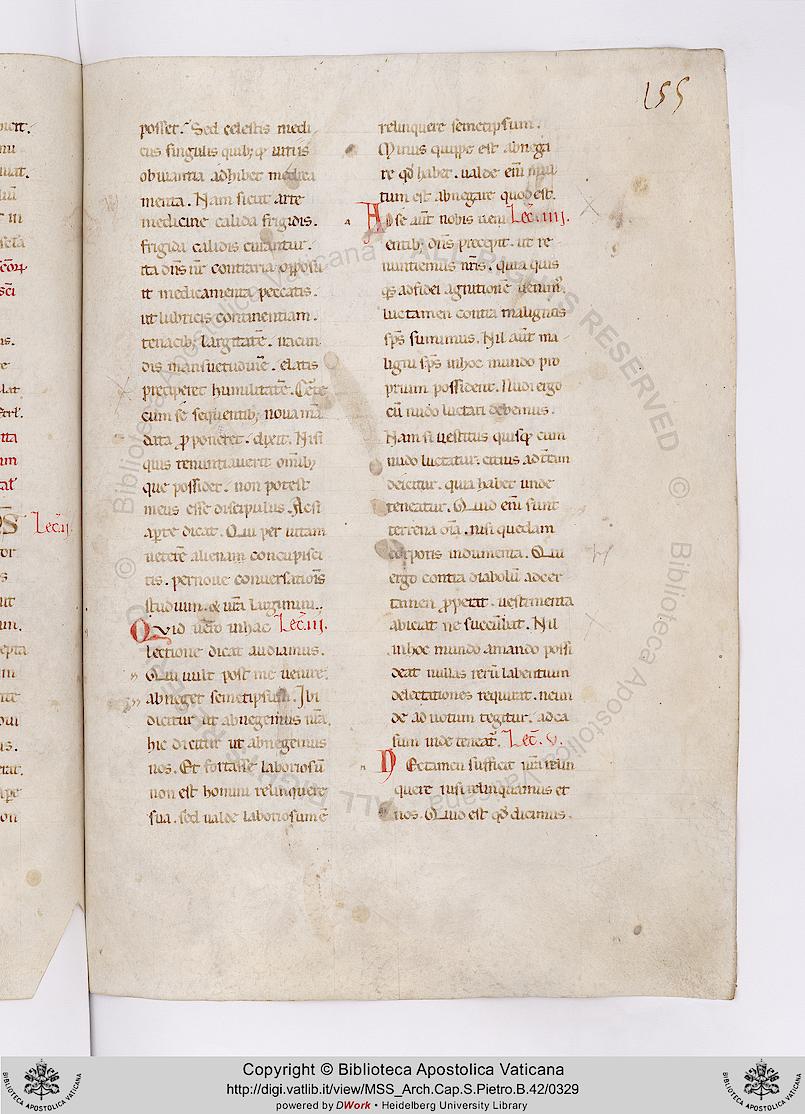 155
posset. Sed celestis medi
cus singulis quib; q; uitiis
obuiantia adhibet medica
menta. Nam sicut arte
medicine calida frigidis.
frigida calidis curantur.
ita dn̄s nr̄ contraria opposu
it medicamenta peccatis.
ut lubricis continentiam.
tenacib; largitatē. iracun
dis mansuetudinē. elatis
preciperet humilitatē. Certe
cum se sequentib; noua mā
data proponeret. dixit. Nisi
quis renuntiauerit omīb;
que possidet. non potest
meus esse discipulus. Ac si
aperte dicat. Qui per uitam
ueterē aliena concupisci
tis. per noue conuersationis
studium. & ura largimini.
Quid uero in hac Lec̄. iii.
lectione dicat audiamus.
Qui uult post me uenire.
abneget semetipsum. Ibi
dicitur ut abnegemus nr̄a.
hic dicitur ut abnegemus
nos. Et fortasse laboriosū
non est homini relinquere
sua. sed ualde laboriosum ē
relinquere semetipsum.
Minus quippe est abnega
re qd̄ habet. ualde eni mul
tum est abnegare quod est.
Ad se aut̄ nobis ueni Lec̄. iiii.
entib; dn̄s precepit. ut re
nuntiemus nr̄is. quia quicū
q; ad fidei agnitionē uenim̄.
luctamen contra malignos
sp̄s sumimus. Nil aut̄ ma
ligni sp̄s in hoc mundo pro
prium possident. Nudi ergo
cū nudo luctari debemus.
Nam si uestitus quisq; cum
nudo luctatur. citius ad terram
deicitur. quia habet unde
teneatur. Quid eni sunt
terrena om̄ia. nisi quedam
corporis indumenta. Qui
ergo contra diabolū ad cer
tamen properat. uestimenta
abiciat ne succūbat. Nil
in hoc mundo amando possi
deat nullas rerū labentium
delectationes requirat. ne un
de ad uotum tegitur. ad ca
sum inde teneat̄. Lec̄. v.
Nec tamen sufficit nr̄a relin
quere nisi relinquamus et
nos. Quid est qd̄ dicimus.
Copyright © Biblioteca Apostolica Vaticana
http://digi.vatlib.it/view/MSS_Arch.Cap.S.Pietro.B.42/0329
powered by DWork • Heidelberg University Library